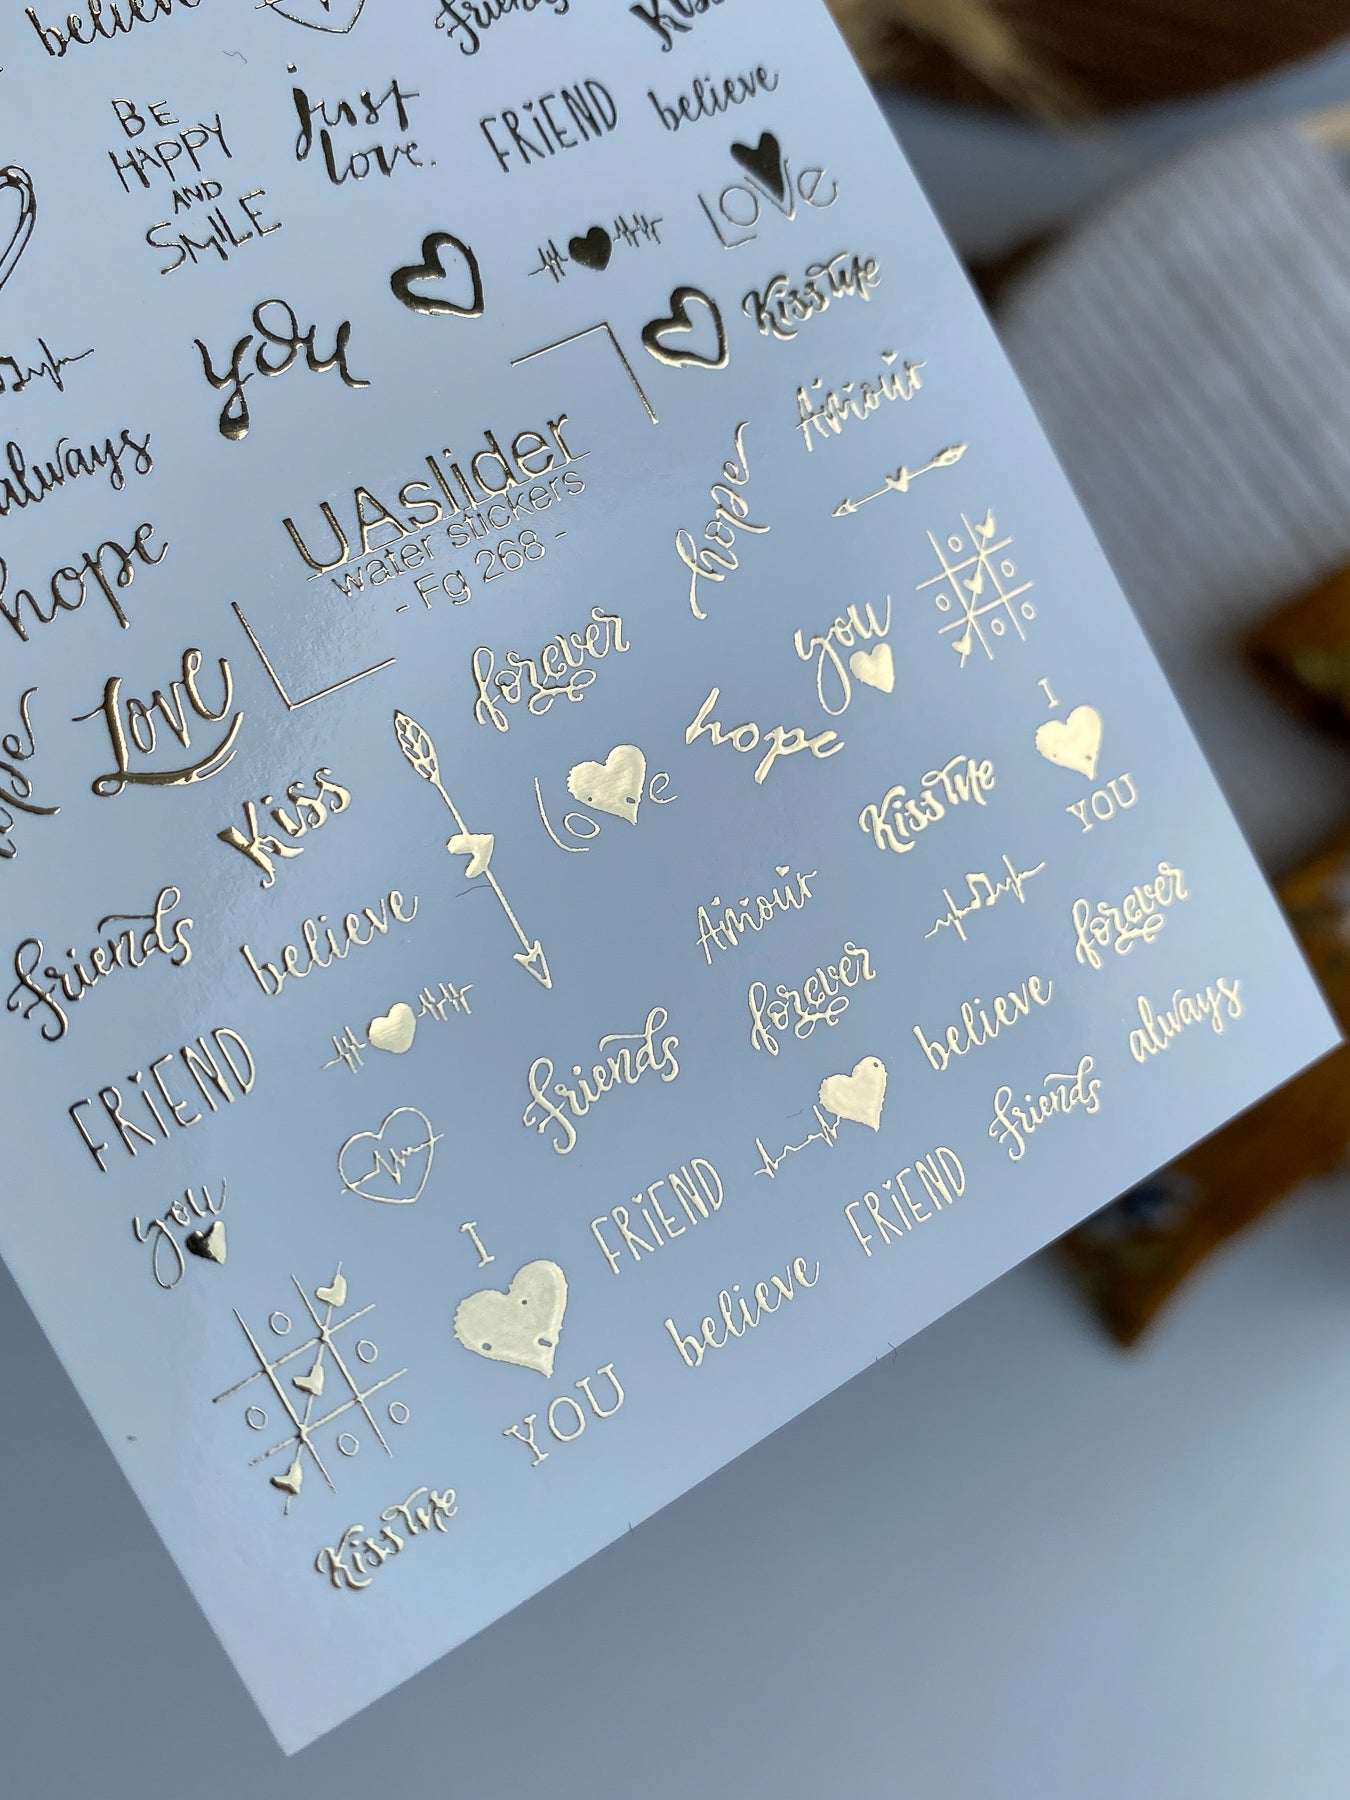 believe
Friends
Kiss
BE
HAPPY
AND
SMILE
just
love.
FRIEND
believe
LOVE
you
Kiss Me
always
UAslider
water stickers
- Fg 268 -
hope
Amour
hope
Love
forever
you
Kiss
love
hope
I
YOU
Kiss Me
Friends
believe
Amour
forever
FRIEND
Friends
forever
believe
always
you
I
YOU
FRIEND
believe
FRIEND
Friends
Kiss Me